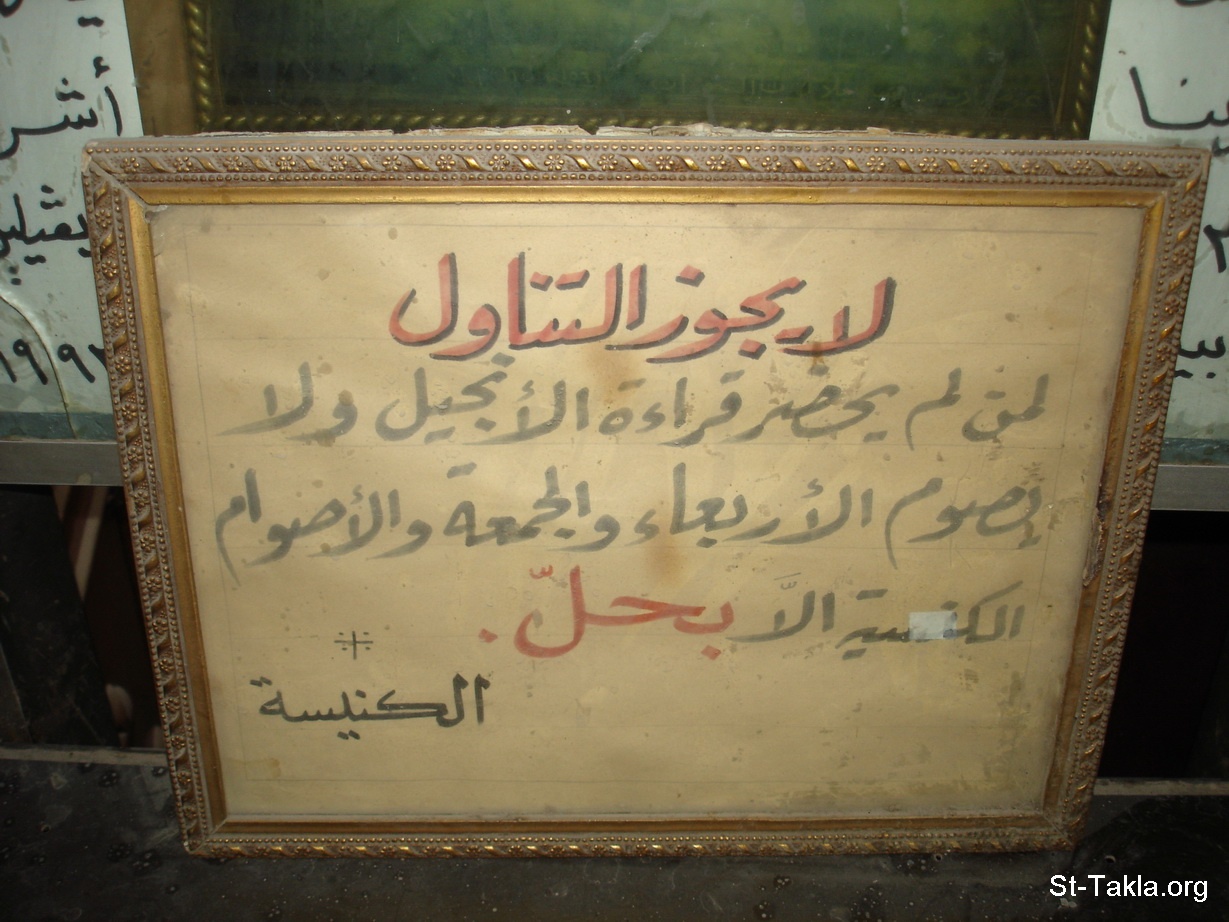 لا يجوز التناول
لمن لم يحضر قراءة الأنجيل ولا
يصوم الأربعاء والجمعة والأصوام
الكنسية الاَّ بحلّ.
الكنيسة
أشر
١٩٩
St-Takla.org